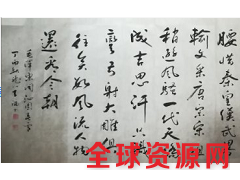 腰惜秦皇漢武略
輸文采唐宗宋祖
稍遜風騷一代天驕
成吉思汗只識
彎弓射大雕俱
往矣數風流人物
還看今朝
毛澤東詞沁園春雪
丁酉
全球资源网